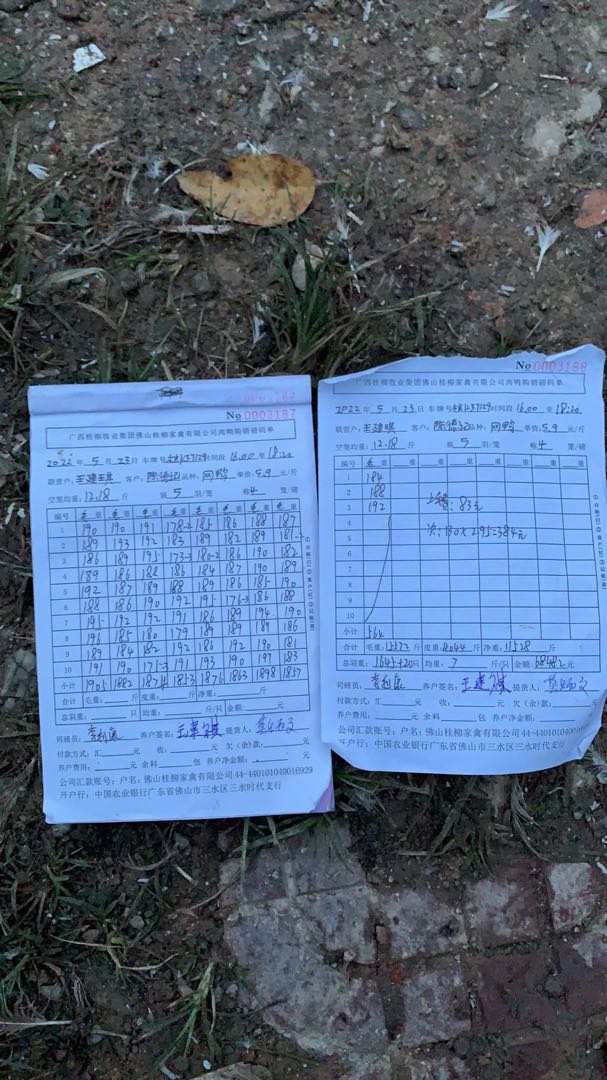 No 0003187
广西桂柳牧业集团佛山桂柳家禽有限公司肉鸭购销磅码单
2022 年 5 月 23 日 车牌号 时间段 16.00 一 18:20
联营户: 王建琪 客户: 陈德记 品种: 网鸭 单价: 5.9 元/斤
空笼均重: 12.18 斤 装 5 羽/笼 称 4 笼/磅
编号 毛 重 毛 重 毛 重 毛 重 毛 重 毛 重 毛 重 毛 重
1 190 190 191 178-2 185 186 188 187
2 189 193 192 183 189 182 189
3 186 189 195 173-3 180-2 186 190 182
4 189 186 188 186 184 187 190 189
5 192 187 189 188 189 186 185 190
6 188 186 190 192 195 176-3 186 188
7 195 192 192 191 186 189 194 190
8 196 185 180 179 189 189 189 186
9 189 184 182 192 186 192 190 181
10 191 190 175-3 191 193 190 197 183
小计 1905 1882 1874 1853 1876 1863 1898 1857
合计 毛重: 斤 皮重: 斤 净重: 斤
总羽重: 只 均重: 斤/只 金额: 元
司磅员: 养户签名: 王建琪 提货人:
付款方式: 汇 元 收: 元 欠(余)款: 元
养户费用: 元 余料 包 养户净金额: 元
公司汇款账号: 户名: 佛山桂柳家禽有限公司 44-440101040016929
开户行: 中国农业银行广东省佛山市三水区三水时代支行
No 0003188
广西桂柳牧业集团佛山桂柳家禽有限公司肉鸭购销磅码单
2022 年 5 月 23 日 车牌号 时间段 16.00 一 18:20
联营户: 王建琪 客户: 陈德记 品种: 网鸭 单价: 5.9 元/斤
空笼均重: 12.18 斤 装 5 羽/笼 称 4 笼/磅
编号 毛 重 重 重 重 重 重 重 重
1 184
2 188
3 192 : 83元
4
5 次: 130 x 2.95=384元
6
7
8
9
10
小计 564
合计 毛重: 15572 斤 皮重: 4044 斤 净重: 11528 斤
总羽重: 1645+20只 均重: 7 斤/只 金额: 68482 元
司磅员: 养户签名: 王建琪 提货人:
养户费用: 元 余料 包 养户净金额:
付款方式: 汇 元 收: 元 欠(余)款: 元
公司汇款账号: 户名: 佛山桂柳家禽有限公司 44-440101040
开户行: 中国农业银行广东省佛山市三水区三水时代支行